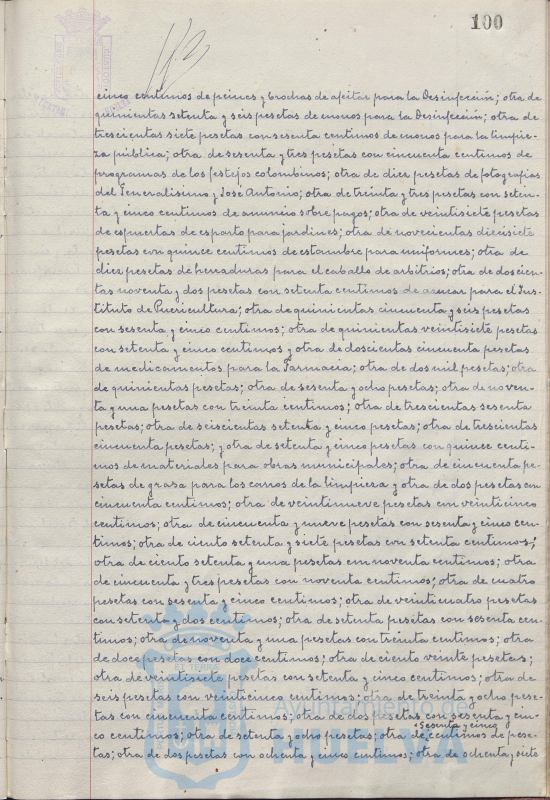 100
cinco centimos de peines y brochas de afeitar para la Desinfección; otra de
quinientas setenta y seis pesetas de monos para la Desinfección; otra de
trescientas siete pesetas con sesenta centimos de monos para la limpie-
za pública; otra de sesenta y tres pesetas con cincuenta centimos de
programas de los festejos colombinos; otra de diez pesetas de fotografias
del Generalisimo y José Antonio; otra de treinta y tres pesetas con seten-
ta y cinco centimos de anuncio sobre pagos; otra de veintisiete pesetas
de espuertas de esparto para jardines; otra de novecientas diecisiete
pesetas con quince centimos de estambre para uniformes; otra de
diez pesetas de herraduras para el caballo de arbitrios; otra de doscien-
tas noventa y dos pesetas con setenta centimos de azucar para el Ins-
tituto de Puericultura; otra de quinientas cincuenta y seis pesetas
con sesenta y cinco centimos; otra de quinientas veintisiete pesetas
con setenta y cinco centimos y otra de doscientas cincuenta pesetas
de medicamentos para la Farmacia; otra de dos mil pesetas; otra
de quinientas pesetas; otra de sesenta y ocho pesetas; otra de noven-
ta y una pesetas con treinta centimos; otra de trescientas sesenta
pesetas; otra de seiscientas setenta y cinco pesetas; otra de trescientas
cincuenta pesetas; y otra de setenta y cinco pesetas con quince centi-
mos de materiales para obras municipales; otra de cincuenta pe-
setas de grasa para los carros de la limpiesa y otra de dos pesetas con
cincuenta centimos; otra de veintinueve pesetas con veinticinco
centimos; otra de cincuenta y nueve pesetas con sesenta y cinco cen-
timos; otra de ciento setenta y siete pesetas con setenta centimos;
otra de ciento setenta y una pesetas con noventa centimos; otra
de cincuenta y tres pesetas con noventa centimos; otra de cuatro
pesetas con sesenta y cinco centimos; otra de veinticuatro pesetas
con setenta y dos centimos; otra de setenta pesetas con sesenta cen-
timos; otra de noventa y una pesetas con treinta centimos; otra
de doce pesetas con doce centimos; otra de ciento veinte pesetas;
otra de veintisiete pesetas con setenta y cinco centimos; otra de
seis pesetas con veinticinco centimos; otra de treinta y ocho pese-
tas con cincuenta centimos; otra de dos pesetas con sesenta y cin-
co centimos; otra de setenta y ocho pesetas; otra de sesenta y cinco centimos de pese-
tas; otra de dos pesetas con ochenta y cinco centimos; otra de ochenta y siete
Ayuntamiento de
HUELVA